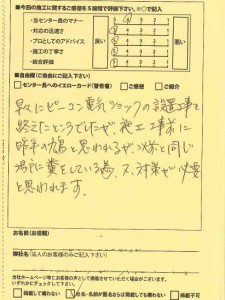 ■今回の施工に関するご感想を5段階で評価下さい。※○で記入
・当センター員のマナー
・対応の迅速さ
・プロとしてのアドバイス
・施工の丁寧さ
・総合評価
良い
悪い
5 4 3 2 1
■自由欄（ご自由にご記入下さい）
□センター長へのイエローカード（警告書） □ご感想 □ご紹介
早々にピーコン電気ショックの設置工事を
終えたところでしたが、施工工事前に
昨年の鳩と思われるが、以前と同じ
場所に糞をしている為、又、対策が必要
と思われます。
お名前（お役職）
御社名（法人のお客様のみご記入下さい）
当社ホームページ等にお客様の声として掲載させていただく場合がございます。
いずれかにチェックして下さい。
□掲載して構わない
社名・名前が匿名ならば掲載しても構わない
□掲載不可